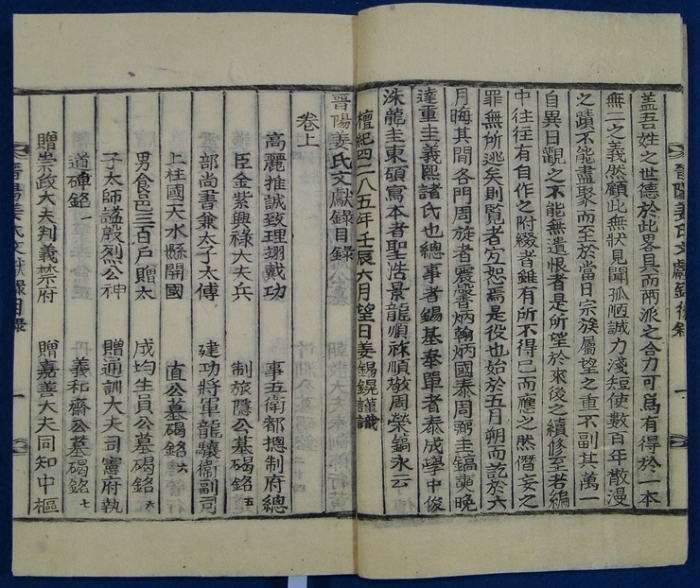 盖吾姓之世德於此畧具而兩派之合力可爲有得於一本
無二之義然顧此無狀見聞孤陋誠力淺短使數百年散漫
之蹟不能盡聚而至於當日宗族屬望之重不副其萬一
自異日觀之不能無遺恨者是所望於來後之續修至若編
中往往有自作之附綴者雖有所不得已而應之然僭妄之
罪無所逃矣則覽者宜恕焉是役也始於五月朔而訖於六
月晦其間各門周旋者震 炳翰炳國泰周弼圭鎬 晩
達重圭義熙諸氏也總事者錫基奉單者泰成學中俊
洙龍圭東碩寫本者聖浩景龍順 順敬周榮鎬永云
檀紀四二八五年壬辰六月望日姜錫錕謹識
晋陽姜氏文獻錄目錄
卷上
高麗推誠致理翊戴功
臣金紫興祿大夫兵
部尚書兼太子太傅
上柱國天水縣開國
男食邑三百戶贈太
子太師諡殷烈公神
道碑銘 一
贈崇政大夫判義禁府
事五衛都摠制府總
制旅隱公墓碣銘 五
建功將軍龍驤衛副司
直公墓碣銘 六
成均生員公墓碣銘 六
贈通訓大夫司憲府執
義和齋公墓碣銘 七
贈嘉善大夫同知中樞
晋陽姜氏文獻錄目錄
一